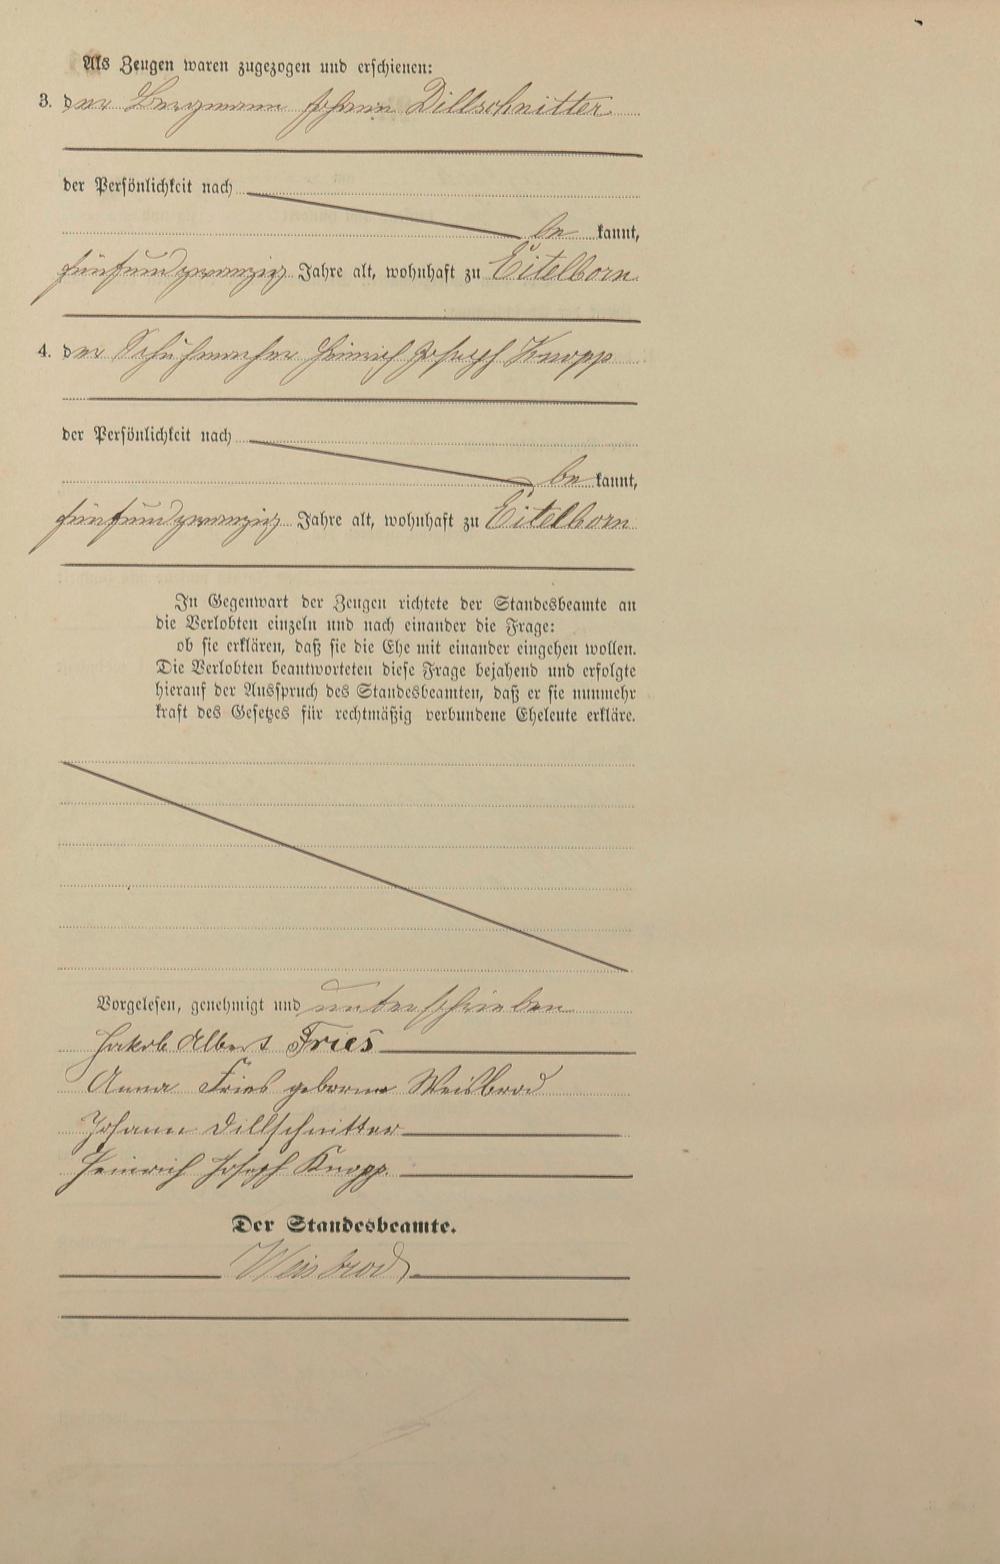 Als Zeugen waren zugezogen und erschienen:
3. der Bergmann Johann Dillschnitter
der Persönlichkeit nach
be kannt,
fünfundzwanzig Jahre alt, wohnhaft zu Eitelborn
4. der Schuhmacher Heinrich Joseph Knopp
der Persönlichkeit nach
be kannt,
fünfundzwanzig Jahre alt, wohnhaft zu Eitelborn
In Gegenwart der Zeugen richtete der Standesbeamte an
die Verlobten einzeln und nach einander die Frage:
ob sie erklären, daß sie die Ehe mit einander eingehen wollen.
Die Verlobten beantworteten diese Frage bejahend und erfolgte
hierauf der Ausspruch des Standesbeamten, daß er sie nunmehr
kraft des Gesetzes für rechtmäßig verbundene Eheleute erkläre.
Vorgelesen, genehmigt und unterschrieben
Jakob Albert Fries
Anna Fries geborene Weisbrod
Johann Dillschnitter
Heinrich Joseph Knopp
Der Standesbeamte.
Weisbrod